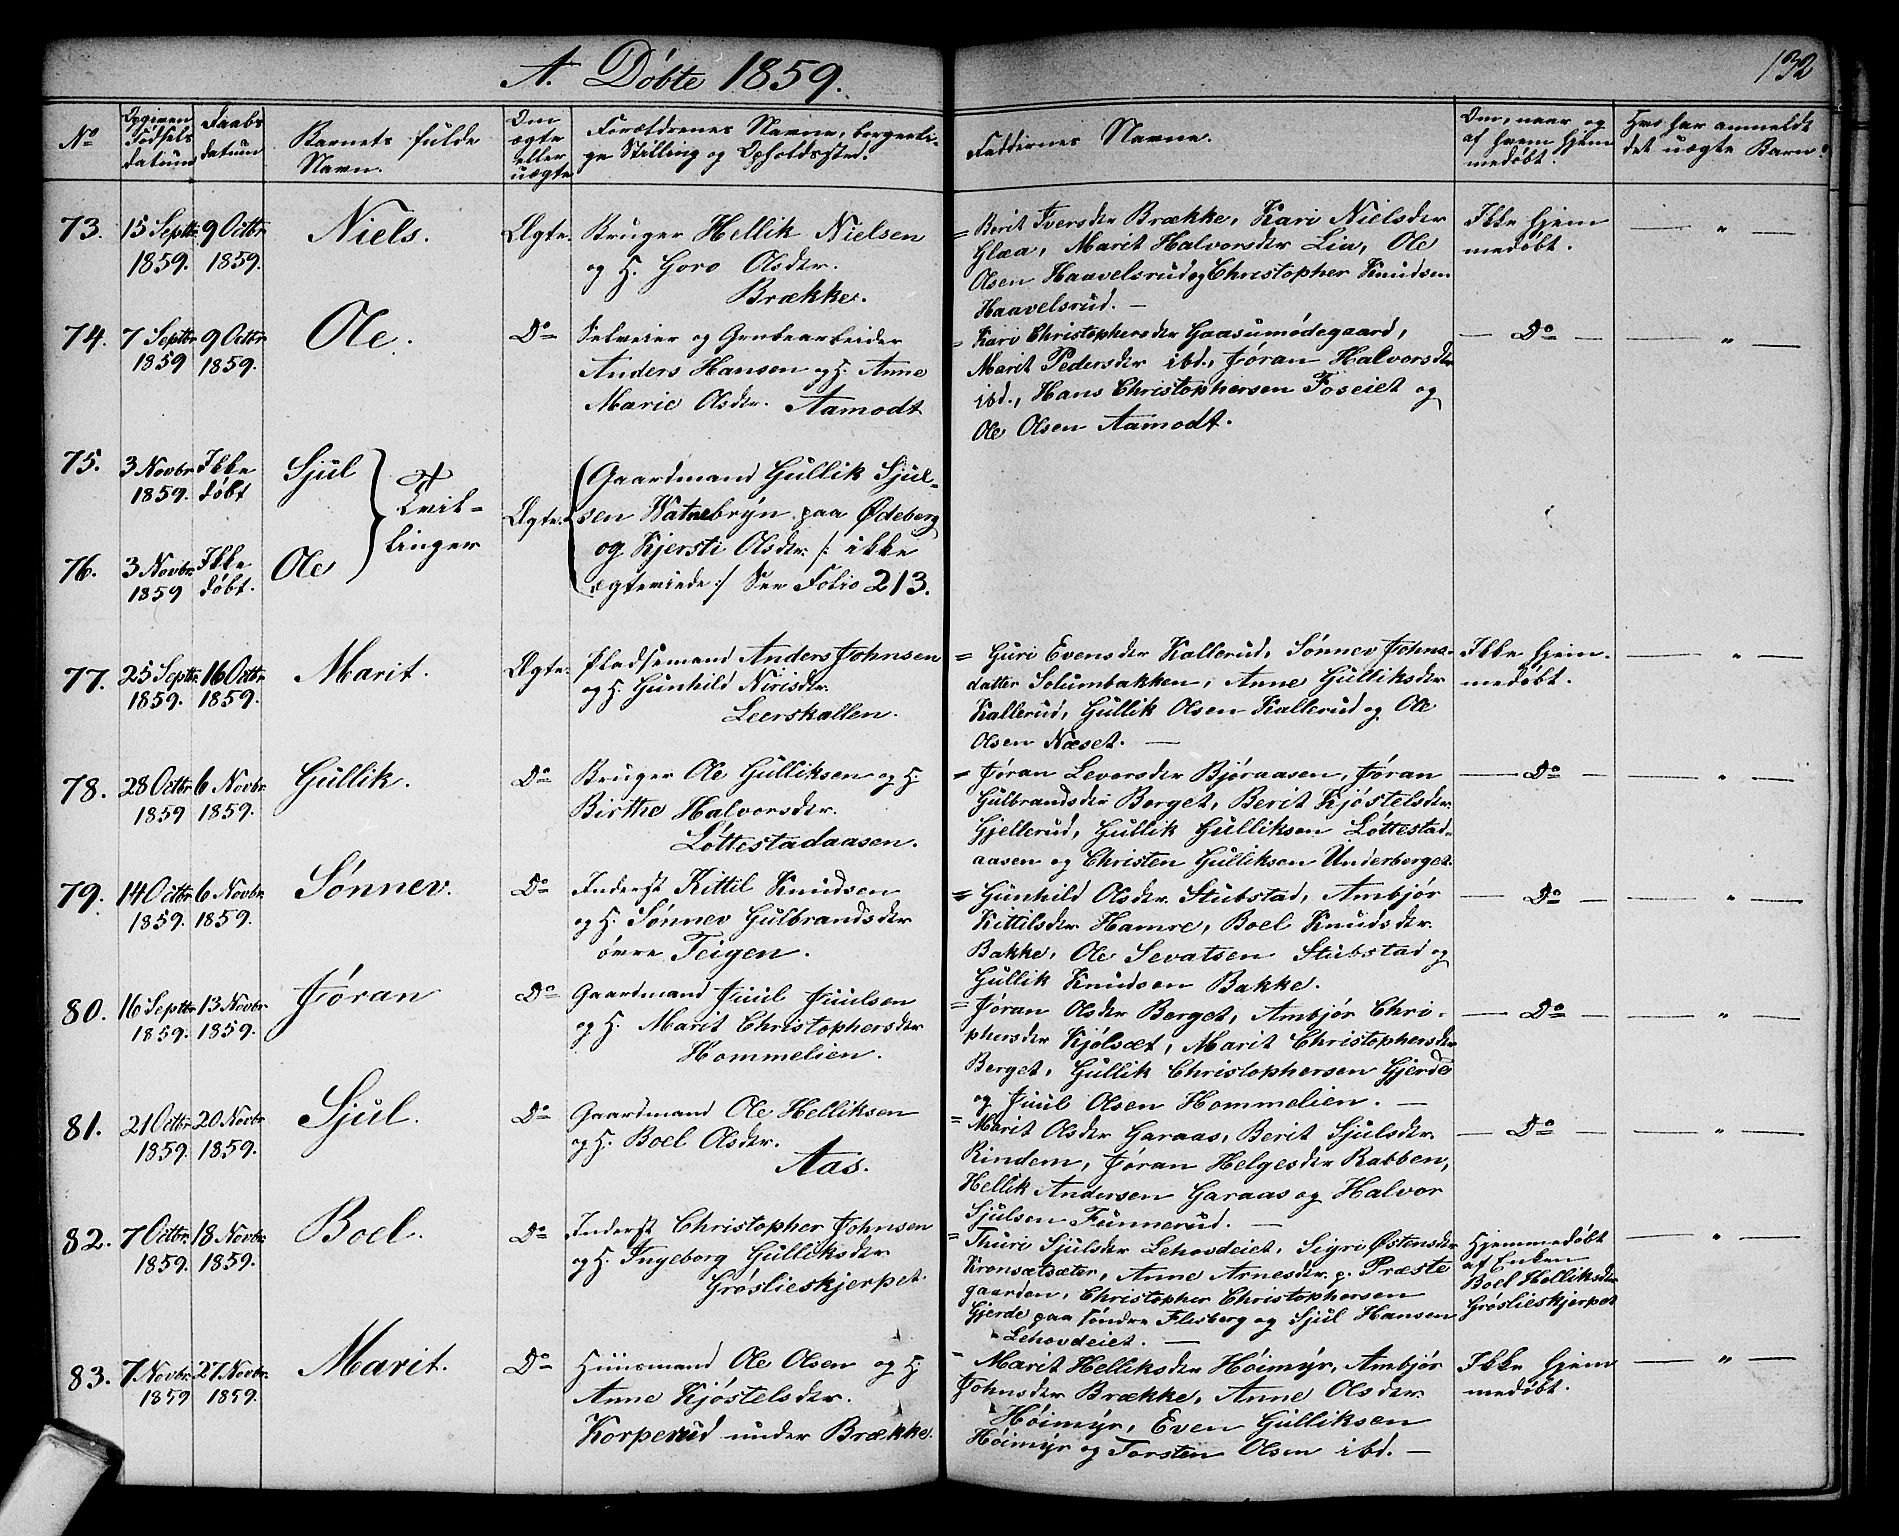 A. Døbte 1859.
132
No
Opgiven Fødsels datum
Daabs datum
Barnets fulde Navn.
Om ægte eller uægte
Forældrenes Navne, borgerlige Stilling og Opholdssted.
Faddernes Navne.
Om, naar og af hvem hjemmedøbt.
Hvo har anmeldt det uægte Barn?
73.
15 Septbr 1859.
9 Octbr 1859.
Niels.
Ægte.
Bruger Hellik Nielsen
og H. Goro Olsdtr.
Brække.
= Berit Iversdtr Brække, Kari Nielsdtr
Glæa, Marit Halvorsdtr Lia, Ole
Olsen Haavelsrud og Christopher Knudsen
Haavelsrud. —
Ikke hjem
medøbt.
— " —
74.
7 Septbr 1859
9 Octbr 1859.
Ole.
Do
Selveier og Grubearbeider
Anders Hansen og H. Anne
Marie Olsdtr. Aamodt
= Kari Christophersdtr Gaasumødegaard,
Marit Pedersdtr ibd., Jøran Halvorsdtr
ibd., Hans Christophersen Foseiet og
Ole Olsen Aamodt.
— Do —
— " —
75.
3 Novbr 1859.
Ikke døbt
Sjul
Tvil-
linger
Ægte.
Gaardmand Gullik Sjul-
sen Watnebryn paa Ødeberg
og Kjersti Olsdtr. /: ikke
ægteviede :/ See Folio 213.
76.
3 Novbr. 1859
Ikke døbt.
Ole
77.
25 Septbr. 1859.
16 Octbr 1859.
Marit.
Ægte.
Pladsemand Anders Johnsen
og H. Gunhild Nirisdtr.
Leerskallen.
= Guri Evensdtr Kallerud, Sønnev Johns-
datter Solumbakken, Anne Gulliksdtr
Kallerud, Gullik Olsen Kallerud og Ole
Olsen Næset. —
Ikke hjem-
medøbt.
— " —
78.
28 Octbr 1859
6 Novbr. 1859.
Gullik.
Do
Bruger Ole Gulliksen og H.
Birthe Halvorsdtr.
Løttestadaasen.
= Jøran Levorsdtr Bjøraasen, Jøran
Gulbrandsdtr Berget, Berit Kjøstelsdtr.
Gjellerud, Gullik Gulliksen Løttestad-
aasen og Christen Gulliksen Underberget.
— Do
— " —
79.
14 Octbr 1859.
6 Novbr. 1859.
Sønnev.
Do
Inderst Kittil Knudsen
og H. Sønnev Gulbrandsdtr
øvre Teigen.
= Gunhild Olsdtr. Stubstad, Ambjør
Kittilsdtr Hamre, Boel Knudsdtr.
Bakke, Ole Sevatsen Stubstad og
Gullik Knudsen Bakke.
— Do —
— " —
80.
16 Septbr 1859.
13 Novbr 1859.
Jøran
Do
Gaardmand Juul Juulsen
og H. Marit Christophersdtr
Hommelien.
= Jøran Olsdtr Berget, Ambjør Chri-
phersdtr Kjølsæt, Marit Christophersdtr
Berget, Gullik Christophersen Gjerde
og Juul Olsen Hommelien. —
— Do —
— " —
81.
21 Octbr 1859.
20 Novbr 1859.
Sjul.
Do
Gaardmand Ole Helliksen
og H. Boel Olsdtr.
Aas.
= Marit Olsdtr Garaas, Berit Sjulsdtr.
Rindem, Jøran Helgesdtr Rabben,
Hellik Andersen Garaas og Halvor
Sjulsen Funnerud. —
— Do —
— " —
82.
7 Octbr. 1859.
18 Novbr. 1859.
Boel.
Do
Inderst Christopher Johnsen
og H. Ingeborg Gulliksdtr.
Grøslieskjerpet.
= Thuri Sjulsdtr Lehovdeiet, Sigri Østensdtr
Kronsætsæter, Anne Arnesdtr. p. Præste
gaarden, Christopher Christophersen
Gjerde paa søndre Flesberg og Sjul Hansen
Lehovdeiet. —
Hjemmedøbt
af Enken
Boel Helliksdtr
Grøslieskjerpet
— " —
83.
7 Novbr. 1859
27 Novbr. 1859.
Marit.
Do
Huusmand Ole Olsen og H.
Anne Kjøstelsdtr.
Korperud under Brække.
= Marit Helliksdtr Høimyr, Ambjør
Johnsdtr Brække, Anne Olsdtr
Høimyr, Even Gulliksen
Høimyr og Torsten Olsen ibd. —
Ikke hjem
medøbt.
— " —